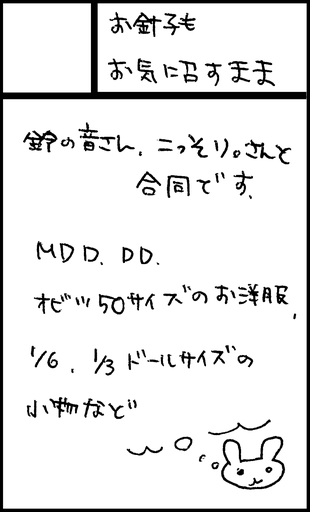 お針子も
お気に召すまま
鈴の音さん、こっそり。さんと
合同です、
MDD、DD、
オビツ50サイズのお洋服、
1/6、1/3ドールサイズの
小物など